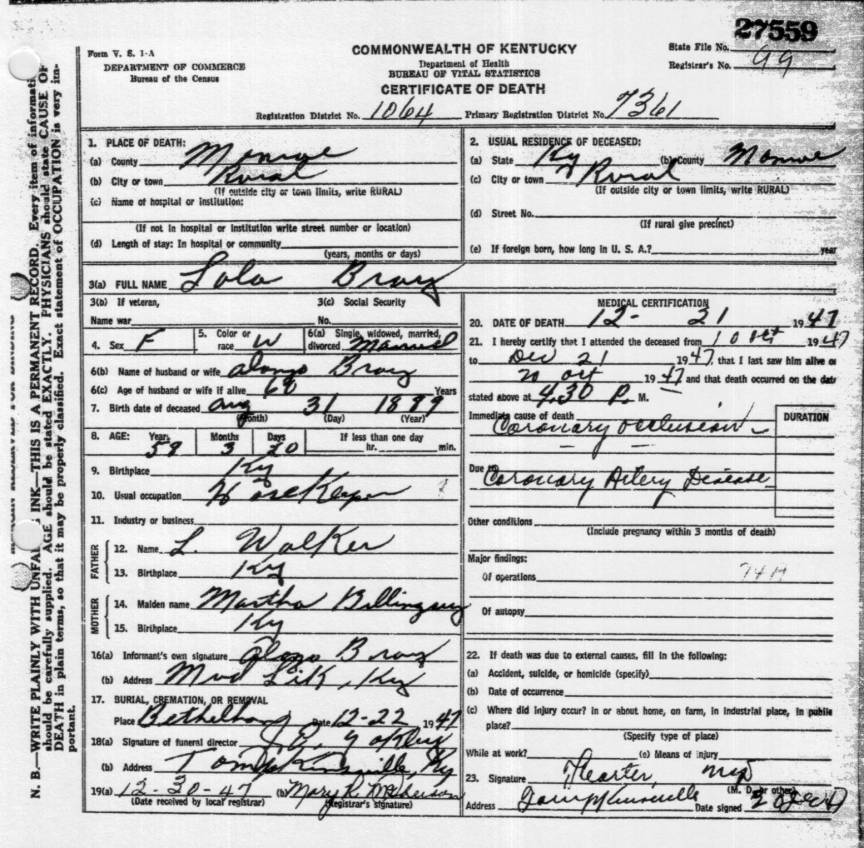 27559
Form V. S. 1-A
DEPARTMENT OF COMMERCE
Bureau of the Census
COMMONWEALTH OF KENTUCKY
Department of Health
BUREAU OF VITAL STATISTICS
CERTIFICATE OF DEATH
State File No.
Registrar's No. 99
Registration District No. 1064 Primary Registration District No. 7361
N. B.—WRITE PLAINLY WITH UNFADING INK—THIS IS A PERMANENT RECORD. Every item of information
should be carefully supplied. AGE should be stated EXACTLY. PHYSICIANS should state CAUSE OF
DEATH in plain terms, so that it may be properly classified. Exact statement of OCCUPATION is very im-
portant.
1. PLACE OF DEATH:
(a) County Monroe
(b) City or town Rural
(If outside city or town limits, write RURAL)
(c) Name of hospital or institution:
(If not in hospital or institution write street number or location)
(d) Length of stay: In hospital or community
(years, months or days)
2. USUAL RESIDENCE OF DECEASED:
(a) State Ky (b) County Monroe
(c) City or town Rural
(If outside city or town limits, write RURAL)
(d) Street No.
(If rural give precinct)
(e) If foreign born, how long in U. S. A.? year
3(a) FULL NAME Lola Bray
3(b) If veteran,
Name war
3(c) Social Security
No.
4. Sex F
5. Color or
race W
6(a) Single, widowed, married,
divorced Married
6(b) Name of husband or wife Alonzo Bray
6(c) Age of husband or wife if alive 68 Years
7. Birth date of deceased Aug 31 1889
(Month) (Day) (Year)
8. AGE: Years Months Days If less than one day
58 3 20 hr. min.
9. Birthplace Ky
10. Usual occupation
11. Industry or business
FATHER
12. Name L. Walker
13. Birthplace Ky
MOTHER
14. Maiden name Martha
15. Birthplace Ky
16(a) Informant's own signature Bray
(b) Address Mud Lick, Ky
17. BURIAL, CREMATION, OR REMOVAL
Place Date 12-22 1947
18(a) Signature of funeral director
(b) Address Tompkinsville, Ky
19(a) 12-30-47 (b) Mary R.
(Date received by local registrar) (Registrar's signature)
MEDICAL CERTIFICATION
20. DATE OF DEATH 12- 21 1947
21. I hereby certify that I attended the deceased from 10 Oct 1947
to Dec 21 1947, that I last saw him alive on
20 Oct 1947 and that death occurred on the date
stated above at 4:30 P. M.
DURATION
Immediate cause of death
Coronary Occlusion
Due to
Coronary Artery Disease
Other conditions
(Include pregnancy within 3 months of death)
Major findings:
Of operations
Of autopsy
22. If death was due to external causes, fill in the following:
(a) Accident, suicide, or homicide (specify)
(b) Date of occurrence
(c) Where did injury occur? In or about home, on farm, in industrial place, in public
place?
(Specify type of place)
While at work? (e) Means of injury
23. Signature
(M. D. or other)
Address Tompkinsville Date signed